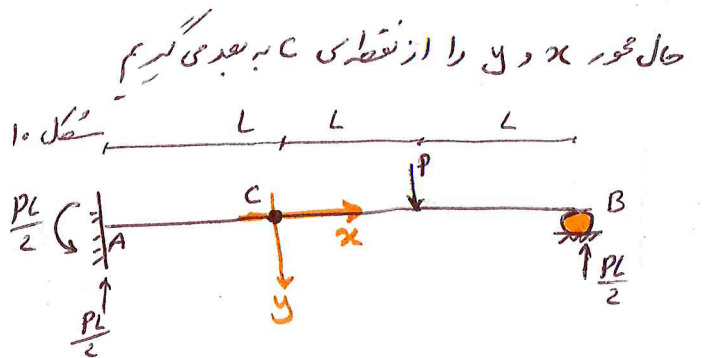 حال محور x و y را از نقطه‌ی C به بعد می گیریم
شکل ۱۰
L L L
P
C
B
A
x
y
PL/2
PL/2
PL/2